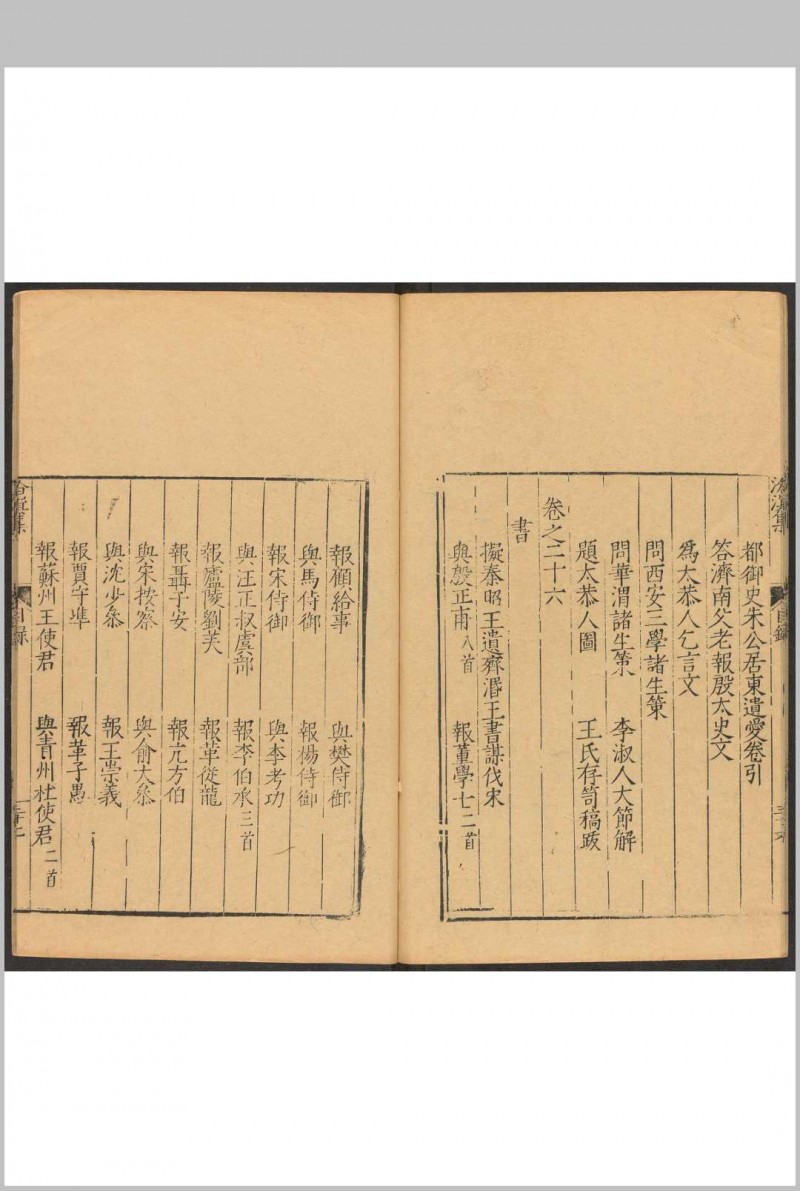 都御史朱公居東遺愛卷引
答濟南父老報殷太史文
爲太恭人乞言文
問西安三學諸生策
問華渭諸生策　李淑人大節解
題太恭人圖　王氏存笥稿跋
卷之二十六
書
擬秦昭王遺齊湣王書謀伐宋
與殷正甫八首　報董學士二首
報顧給事　與樊侍御
與馬侍御　報楊侍御
報宋侍御　與李考功
與汪正叔虞部　報李伯承三首
報廬陵劉芙　報革從龍
報聶子安　報亢方伯
與宋按察　與俞大叅
與沈少叅　報王崇義
報賈守準　報華子愚
報蘇州王使君　與青州杜使君二首